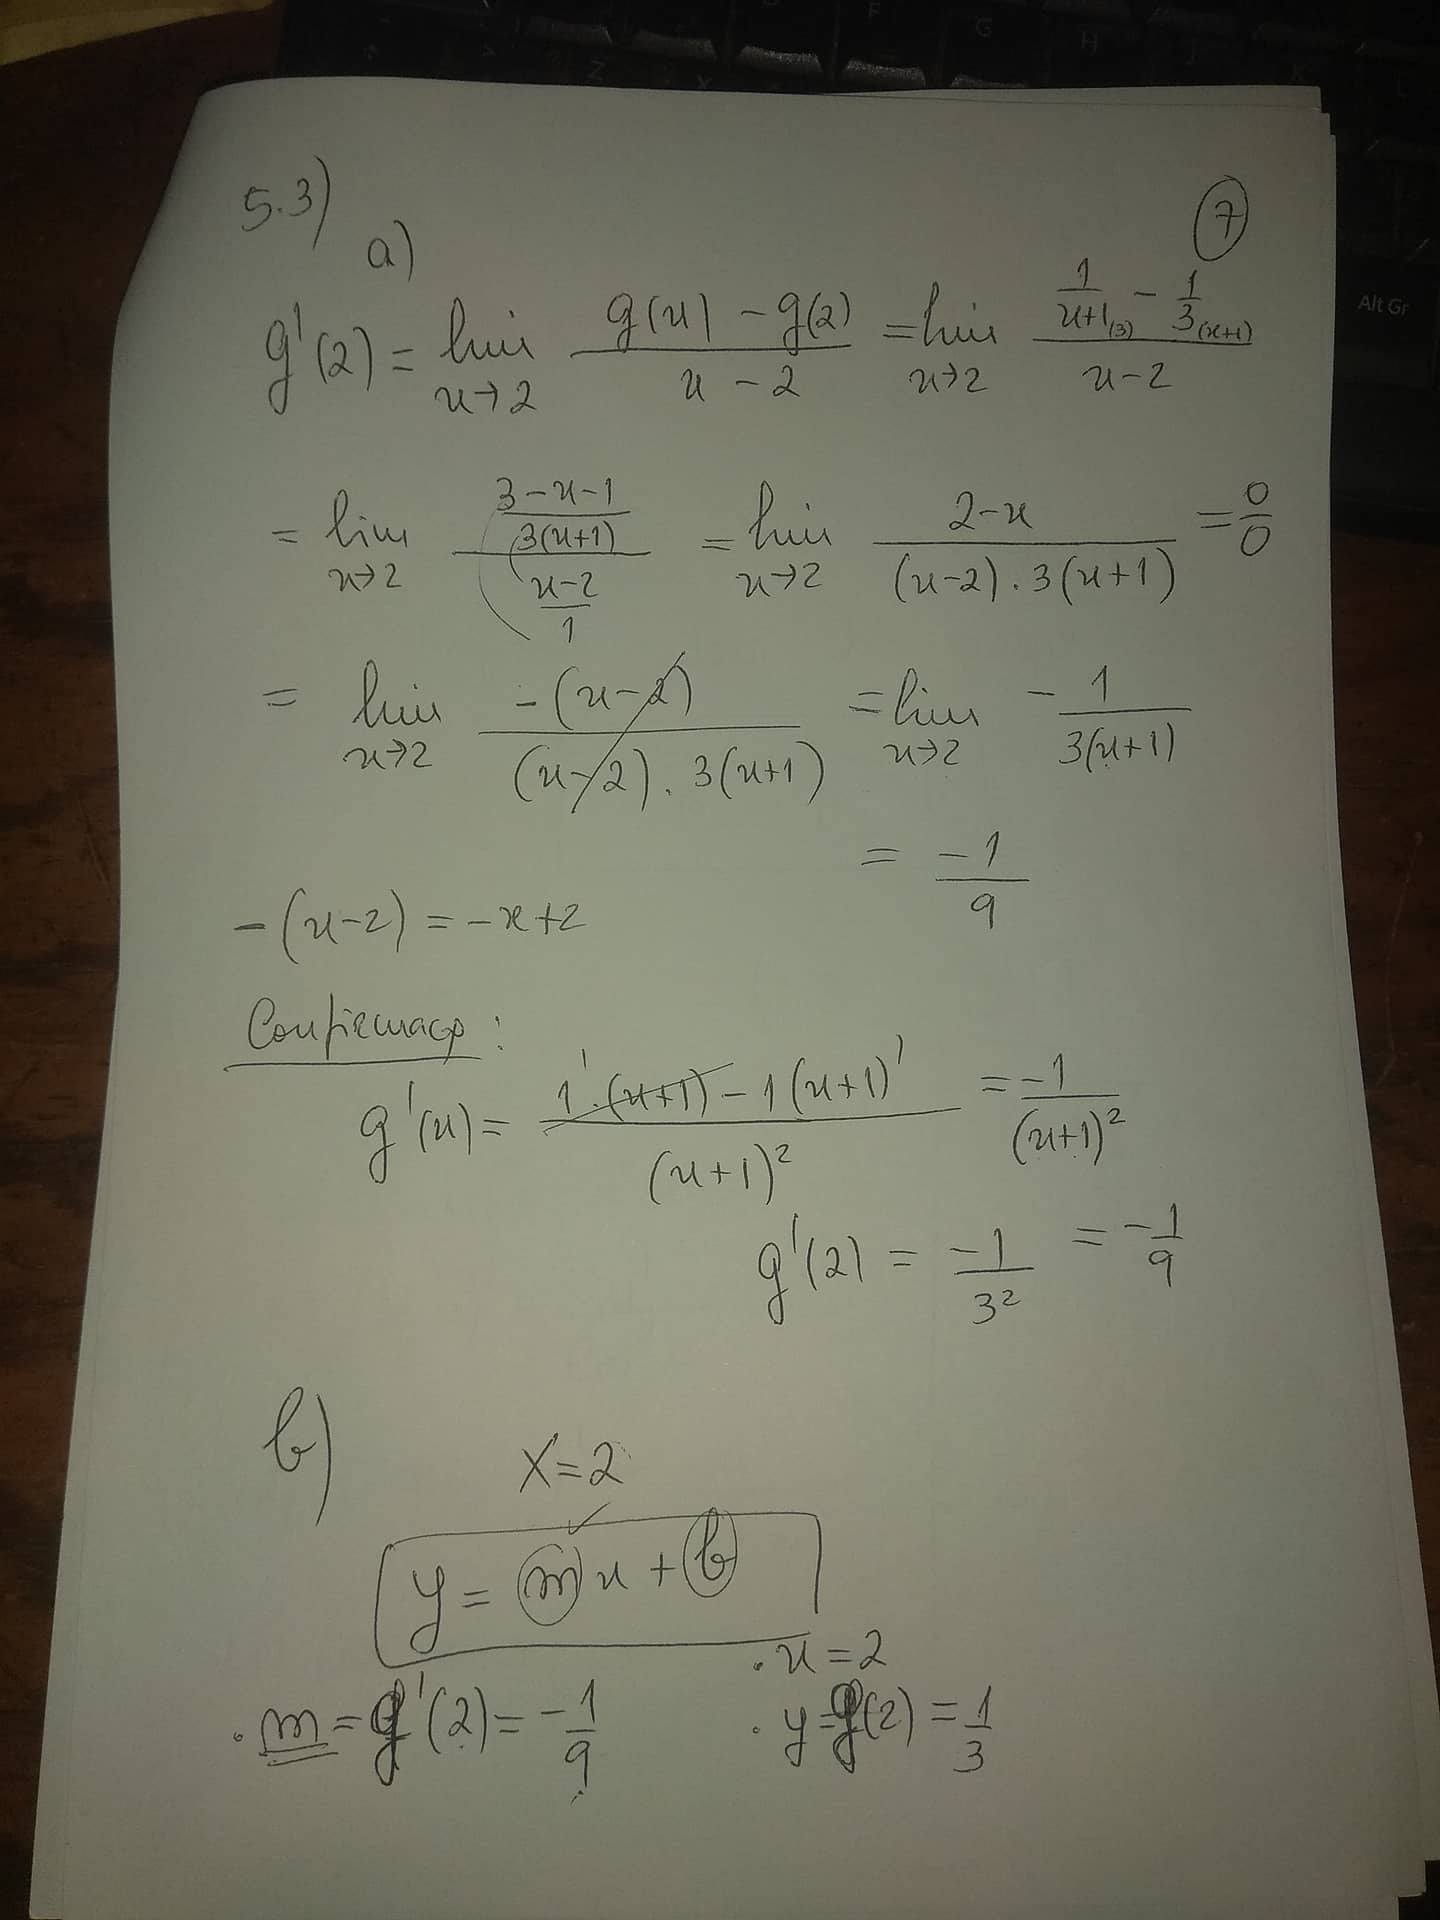 5.3)
7
a)
g'(2) = lim x→2 (g(x) - g(2))/(x - 2) = lim x→2 (1/(x+1)(3) - 1/3(x+1))/(x-2)
= lim x→2 ((3-x-1)/(3(x+1)))/((x-2)/1) = lim x→2 (2-x)/((x-2).3(x+1)) = 0/0
= lim x→2 (-(x-2))/((x-2).3(x+1)) = lim x→2 -1/(3(x+1))
= -1/9
-(x-2) = -x+2
Confirmação:
g'(x) = (1'.(x+1) - 1(x+1)')/((x+1)²) = -1/((x+1)²)
g'(2) = -1/3² = -1/9
b)
X=2
y = mx + b
. x = 2
. m = g'(2) = -1/9
. y = g(2) = 1/3
Alt Gr